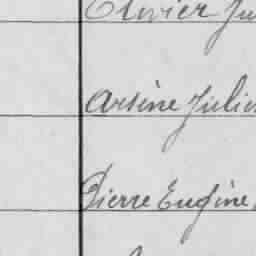 Olivier Ju
Arsène Julie
Pierre Eugène